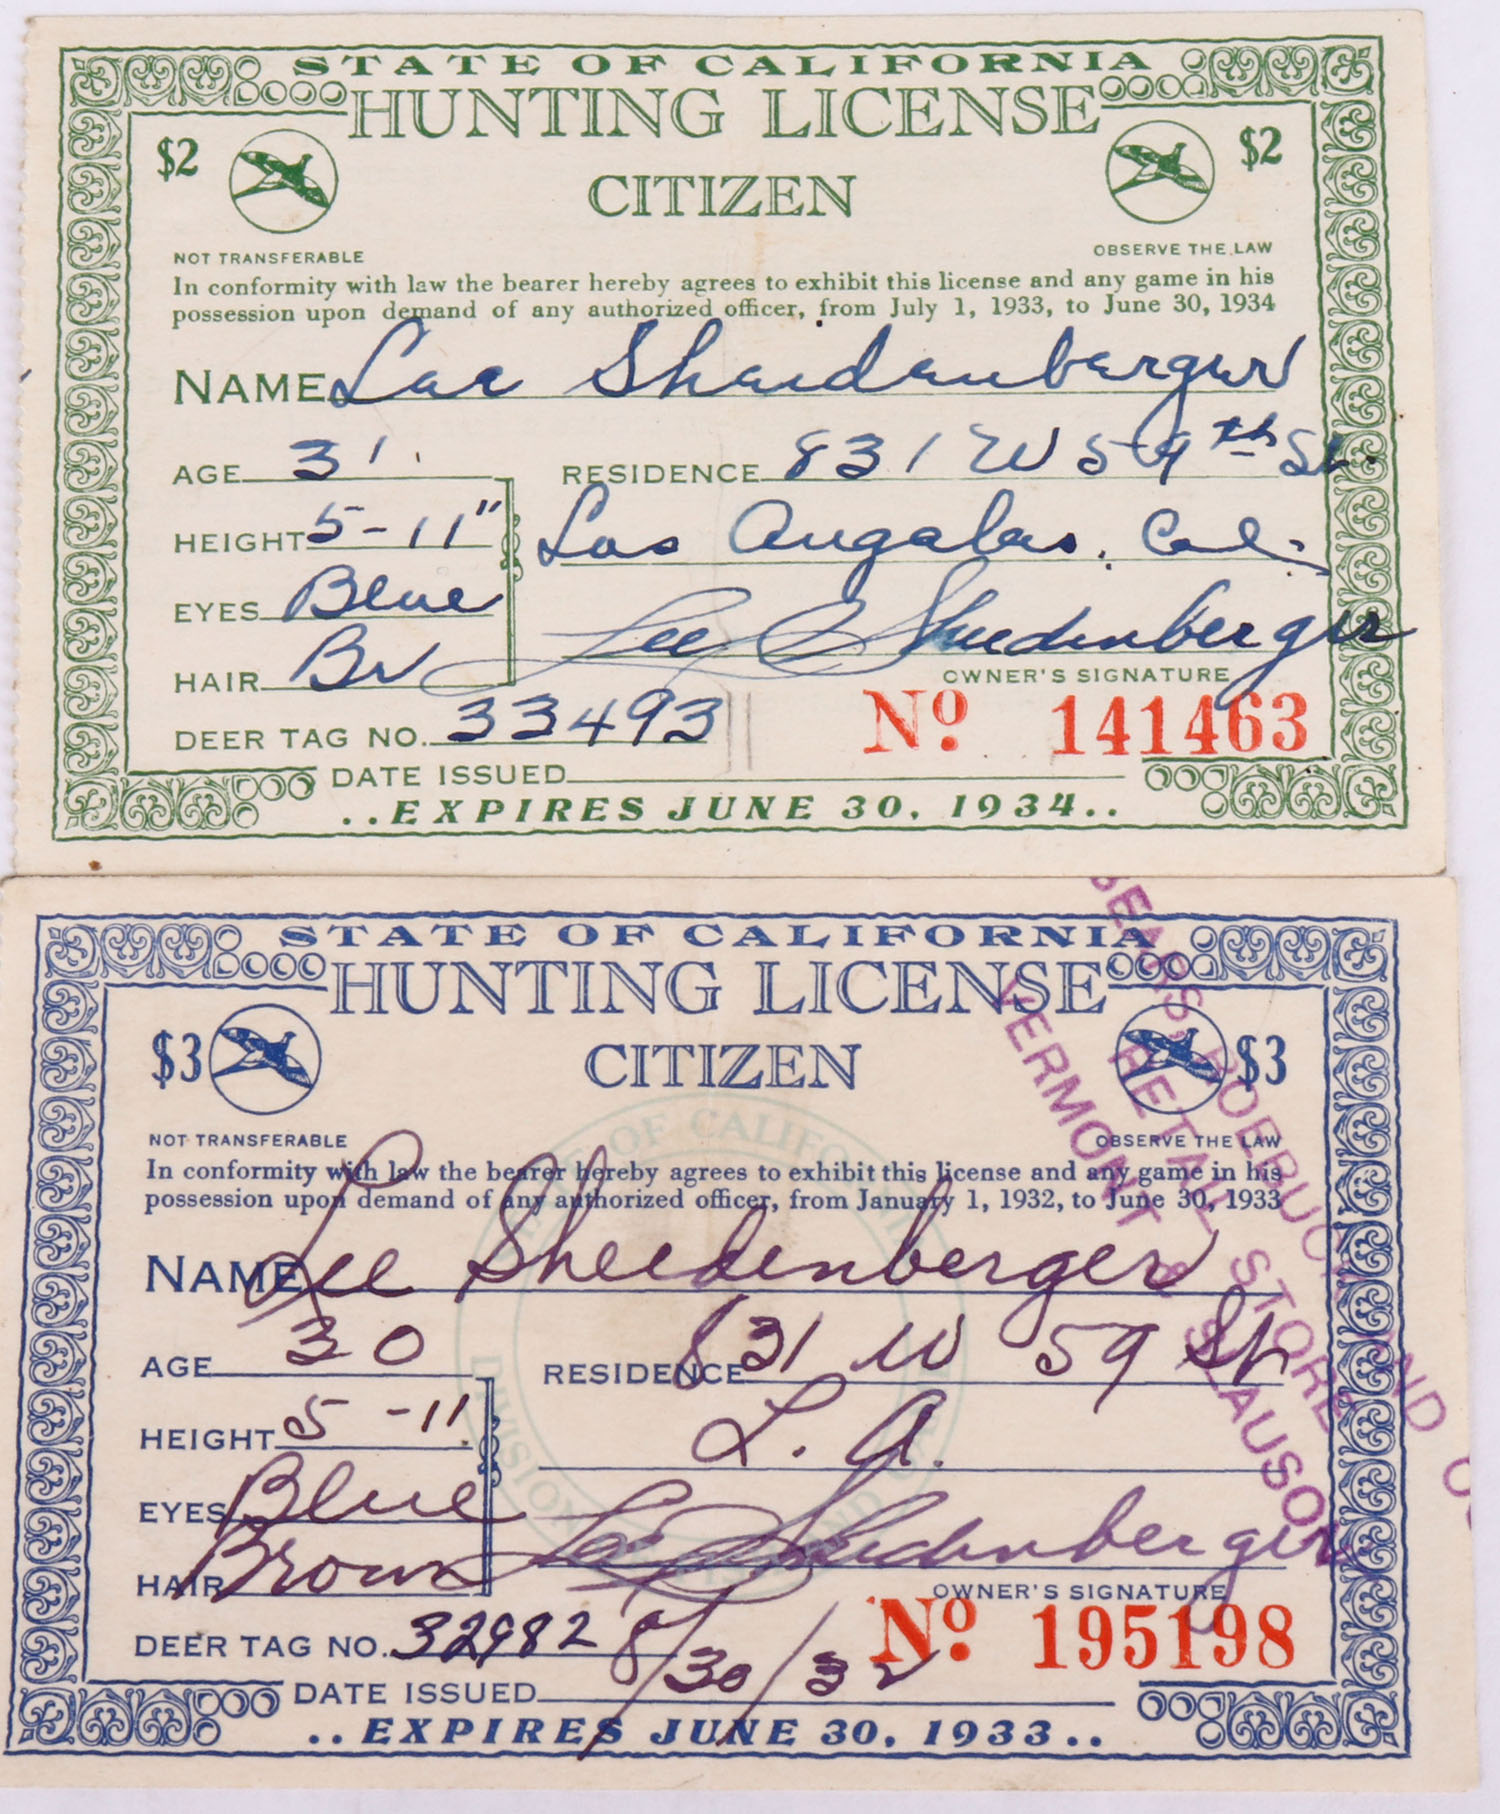 STATE OF CALIFORNIA
HUNTING LICENSE
$2 $2
CITIZEN
NOT TRANSFERABLE OBSERVE THE LAW
In conformity with law the bearer hereby agrees to exhibit this license and any game in his
possession upon demand of any authorized officer, from July 1, 1933, to June 30, 1934
NAME Lee Sheidenberger
AGE 31 RESIDENCE 831 W 59th St.
HEIGHT 5-11" Los Angeles. Cal.
EYES Blue Lee Sheidenberger
HAIR Br OWNER'S SIGNATURE
DEER TAG NO. 33493 No. 141463
DATE ISSUED
..EXPIRES JUNE 30, 1934..
STATE OF CALIFORNIA
HUNTING LICENSE
$3 $3
CITIZEN
NOT TRANSFERABLE OBSERVE THE LAW
In conformity with law the bearer hereby agrees to exhibit this license and any game in his
possession upon demand of any authorized officer, from January 1, 1932, to June 30, 1933
NAME Lee Sheidenberger
AGE 30 RESIDENCE 831 W 59 St.
HEIGHT 5-11 L. A.
EYES Blue Lee Sheidenberger
HAIR Brown OWNER'S SIGNATURE
DEER TAG NO. 32982 No. 195198
DATE ISSUED 8/30/32
..EXPIRES JUNE 30, 1933..
SEARS, ROEBUCK AND CO
RETAIL STORE
VERMONT & SLAUSON
OF CALIFORNIA
DIVISION